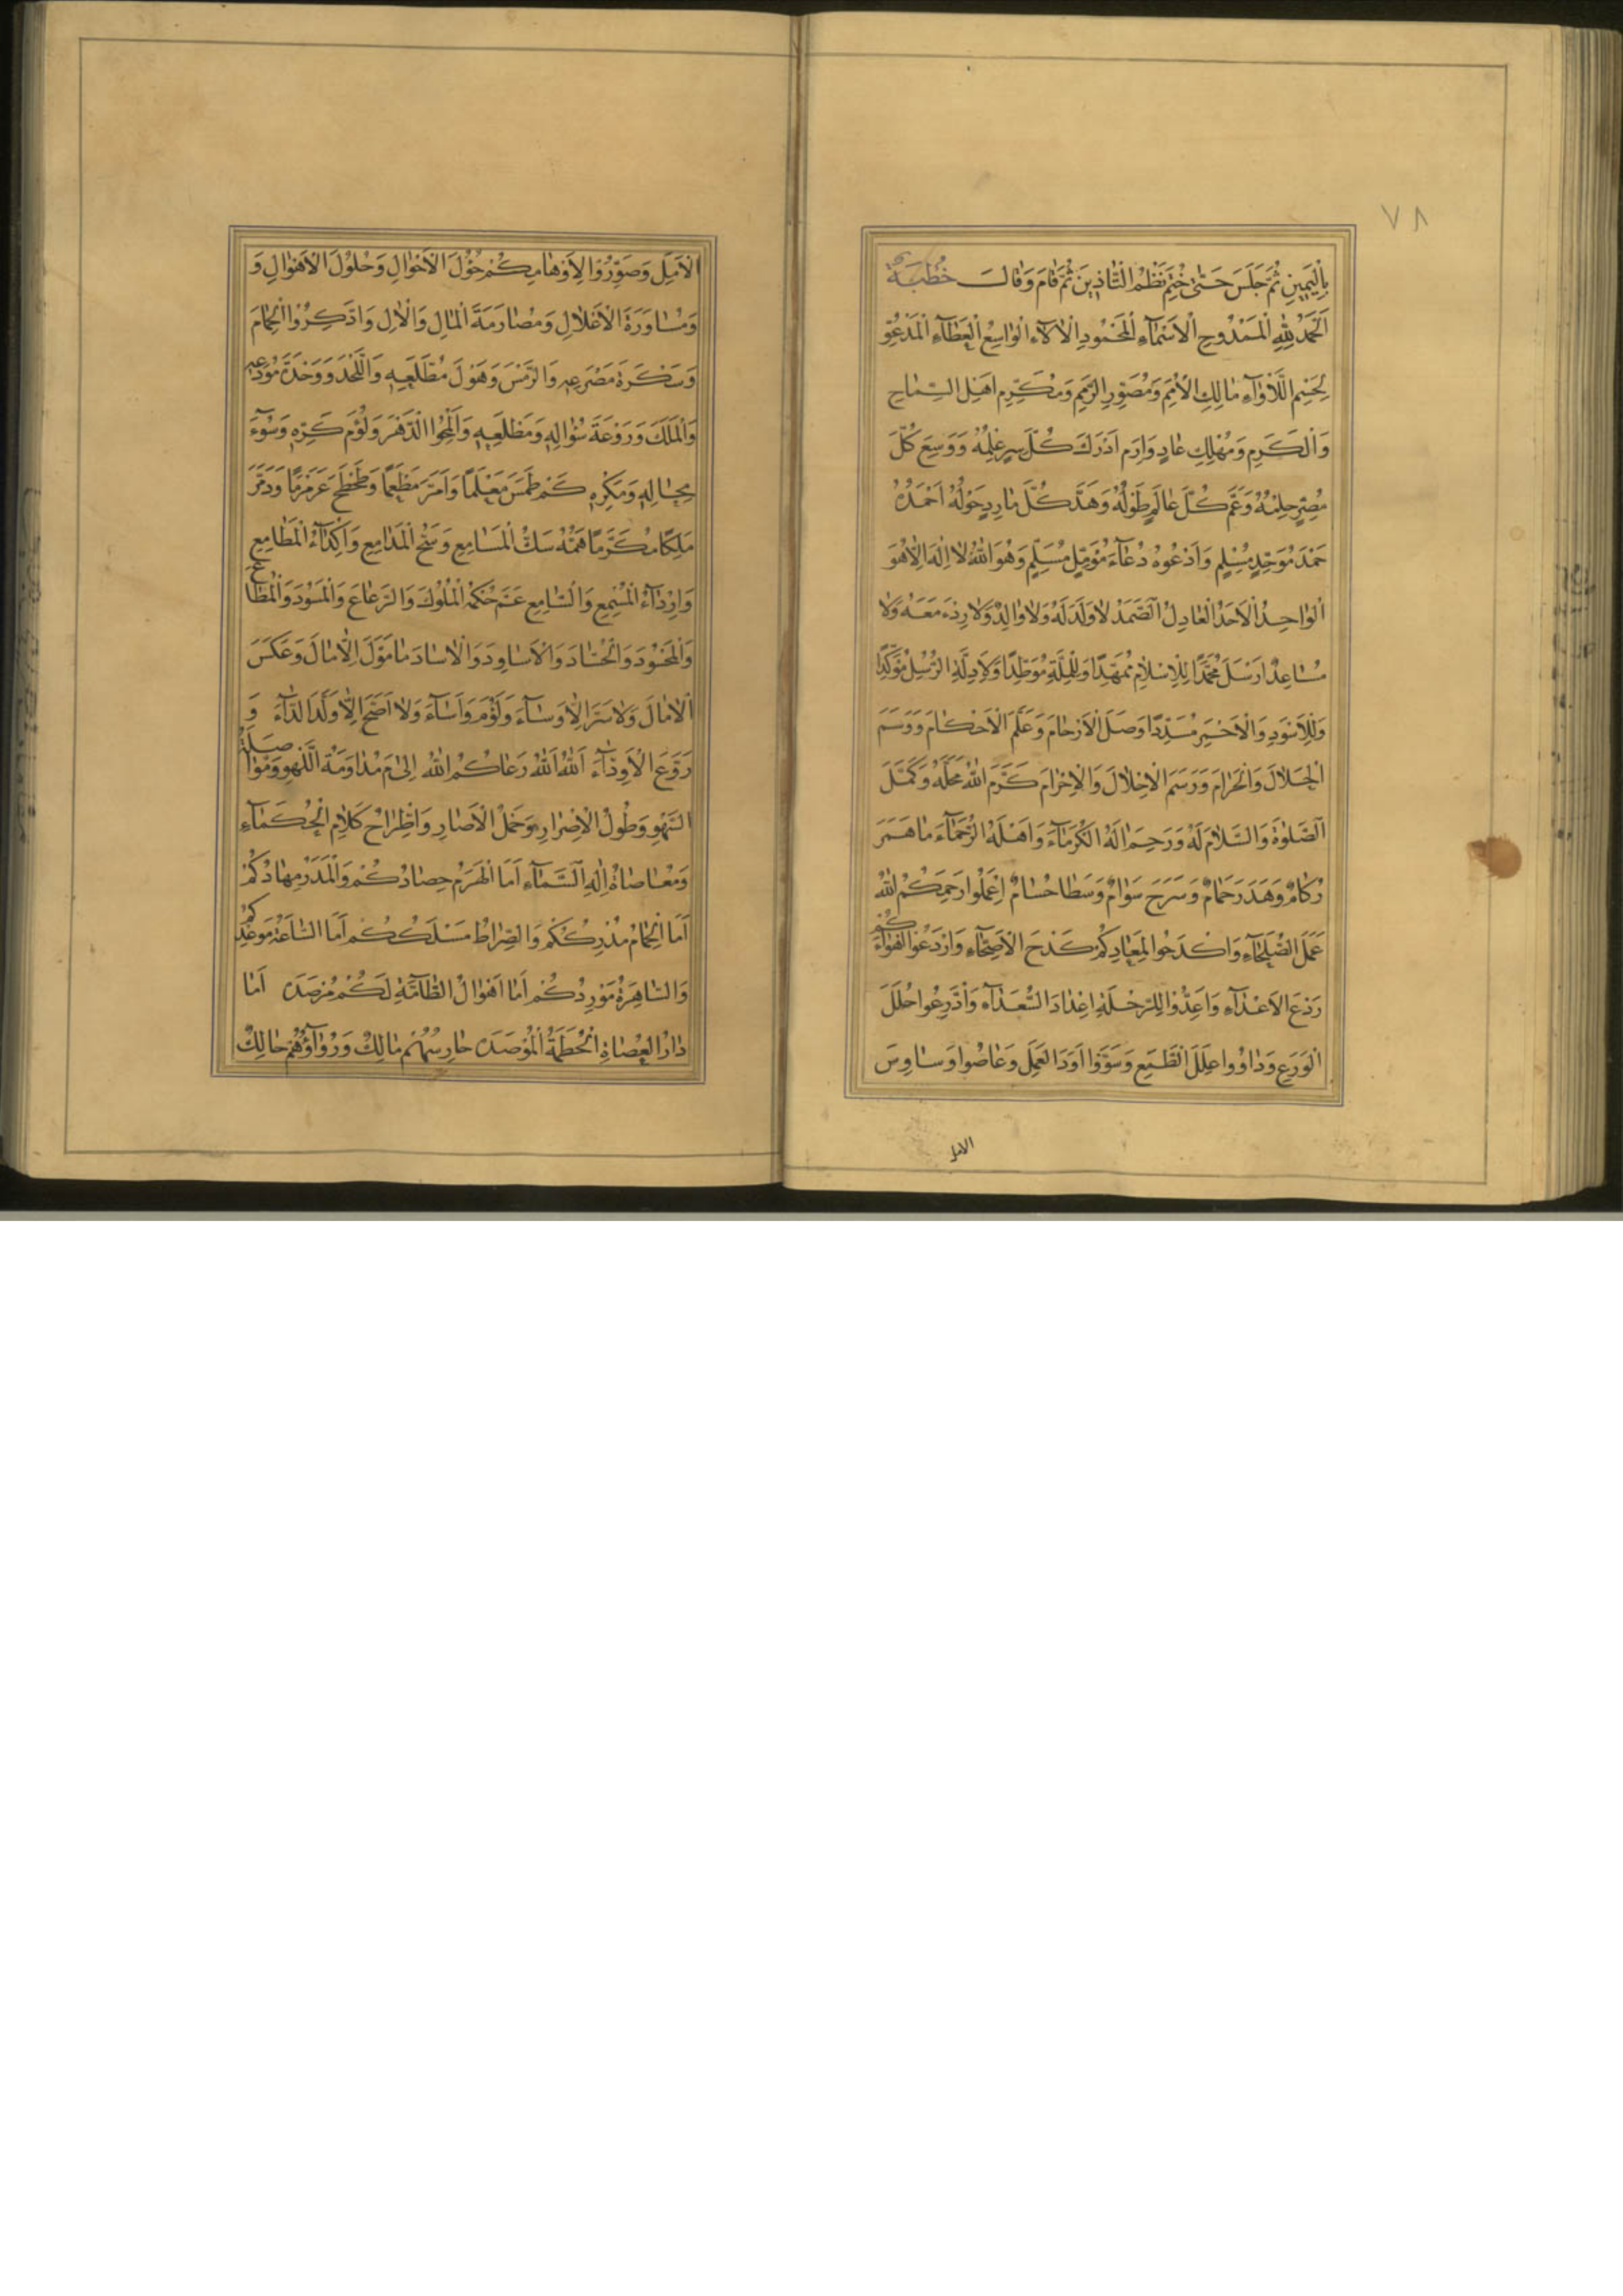 ٧٨
بِالْيَمِينِ ثُمَّ جَلَسَ حَتّٰى خُتِمَ نَظْمُ التَّأْذِينِ ثُمَّ قَامَ وَقَالَ خُطْبَة
اَلْحَمْدُ لِلّٰهِ الْمَمْدُوحِ الْاَسْمَآءِ الْمَحْمُودِ الْاٰلَاءِ الْوَاسِعِ الْعَطَآءِ الْمَدْعُوِّ
لِحَسْمِ اللَّأْوَآءِ مَالِكِ الْاُمَمِ وَمُصَوِّرِ الرِّمَمِ وَمُكَرِّمِ اَهْلِ السَّمَاحِ
وَالْكَرَمِ وَمُهْلِكِ عَادٍ وَاِرَمَ اَدْرَكَ كُلَّ سِرٍّ عِلْمُهُ وَوَسِعَ كُلَّ
مُصِرٍّ حِلْمُهُ وَعَمَّ كُلَّ عَالَمٍ طَوْلُهُ وَهَدَّ كُلَّ مَارِدٍ حَوْلُهُ اَحْمَدُهُ
حَمْدَ مُوَحِّدٍ مُسْلِمٍ وَاَدْعُوهُ دُعَآءَ مُؤَمِّلٍ مُسَلِّمٍ وَهُوَ اللّٰهُ لَا اِلٰهَ اِلَّا هُوَ
الْوَاحِدُ الْاَحَدُ الْعَادِلُ الصَّمَدُ لَا وَلَدَ لَهُ وَلَا وَالِدَ وَلَا رِدْءَ مَعَهُ وَلَا
مُسَاعِدَ اَرْسَلَ مُحَمَّدًا لِلْاِسْلَامِ مُمَهِّدًا وَلِلْمِلَّةِ مُوَطِّدًا وَلِاَدِلَّةِ الرُّسُلِ مُؤَكِّدًا
وَلِلْاَسْوَدِ وَالْاَحْمَرِ مُسَدِّدًا وَصَلَ الْاَرْحَامَ وَعَلَّمَ الْاَحْكَامَ وَوَسَمَ
الْحَلَالَ وَالْحَرَامَ وَرَسَمَ الْاِحْلَالَ وَالْاِحْرَامَ كَرَّمَ اللّٰهُ مَحَلَّهُ وَكَمَّلَ
الصَّلٰوةَ وَالسَّلَامَ لَهُ وَرَحِمَ اٰلَهُ الْكُرَمَآءَ وَاَهْلَهُ الرُّحَمَآءَ مَا هَمَرَ
رُكَامٌ وَهَدَرَ حَمَامٌ وَسَرَحَ سَوَامٌ وَسَطَا حُسَامٌ اِعْمَلُوا رَحِمَكُمُ اللّٰهُ
عَمَلَ الصُّلَحَآءِ وَاكْدَحُوا لِمَعَادِكُمْ كَدْحَ الْاَصِحَّآءِ وَارْدَعُوا اَهْوَآءَكُمْ
رَدْعَ الْاَعْدَآءِ وَاَعِدُّوا لِلرِّحْلَةِ اِعْدَادَ السُّعَدَآءِ وَادَّرِعُوا حُلَلَ
الْوَرَعِ وَدَاوُوا عِلَلَ الطَّمَعِ وَسَوُّوا اَوَدَ الْعَمَلِ وَعَاصُوا وَسَاوِسَ
الامل
الْاَمَلِ وَصَوِّرُوا لِاَوْهَامِكُمْ حُؤُلَ الْاَحْوَالِ وَحُلُولَ الْاَهْوَالِ وَ
وَمُسَاوَرَةَ الْاَعْلَالِ وَمُصَارَمَةَ الْمَالِ وَالْاٰلِ وَادَّكِرُوا الْحِمَامَ
وَسَكْرَةَ مَصْرَعِهِ وَالرَّمْسَ وَهَوْلَ مُطَّلَعِهِ وَاللَّحْدَ وَوَحْدَةَ مُودَعِهِ
وَالْمَلَكَ وَرَوْعَةَ سُؤَالِهِ وَمَطْلَعِهِ وَالْمَحُوا الدَّهْرَ وَلُؤْمَ كَرِّهِ وَسُوٓءَ
مِحَالِهِ وَمَكْرِهِ كَمْ طَمَسَ مَعْلَمًا وَاَمَرَّ مَطْعَمًا وَطَحْطَحَ عَرَمْرَمًا وَدَمَّرَ
مَلِكًا مُكَرَّمًا هَمُّهُ سَكُّ الْمَسَامِعِ وَسَحُّ الْمَدَامِعِ وَاِكْدَآءُ الْمَطَامِعِ
وَاِرْدَآءُ الْمُسْمِعِ وَالسَّامِعِ عَمَّ حُكْمُهُ الْمُلُوكَ وَالرَّعَاعَ وَالْمَسُودَ وَالْمُطَاعَ
وَالْمَحْسُودَ وَالْحُسَّادَ وَالْاَسَاوِدَ وَالْاٰسَادَ مَا مَوَّلَ اِلَّا مَالَ وَعَكَسَ
الْاٰمَالَ وَلَا سَرَّ اِلَّا وَسَآءَ وَلَؤُمَ وَاَسَآءَ وَلَا اَصَحَّ اِلَّا وَلَّدَ الدَّآءَ وَ
رَوَّعَ الْاَوِدَّآءَ اَللّٰهَ اَللّٰهَ رَعَاكُمُ اللّٰهُ اِلٰى مَ مُدَاوَمَةُ اللَّهْوِ وَمُوَاصَلَةُ
السَّهْوِ وَطُولُ الْاِصْرَارِ وَحَمْلُ الْاٰصَارِ وَاطِّرَاحُ كَلَامِ الْحُكَمَآءِ
وَمُعَاصَاةُ اِلٰهِ السَّمَآءِ اَمَا الْهَرَمُ حِصَادُكُمْ وَالْمَدَرُ مِهَادُكُمْ
اَمَا الْحِمَامُ مُدْرِكُكُمْ وَالصِّرَاطُ مَسْلَكُكُمْ اَمَا السَّاعَةُ مَوْعِدُكُمْ
وَالسَّاهِرَةُ مَوْرِدُكُمْ اَمَا اَهْوَالُ الطَّامَّةِ لَكُمْ مُرْصَدَة اَمَا
دَارُ الْعُصَاةِ الْحُطَمَةُ الْمُؤْصَدَة حَارِسُهُمْ مَالِكٌ وَرُوَآؤُهُمْ حَالِكٌ